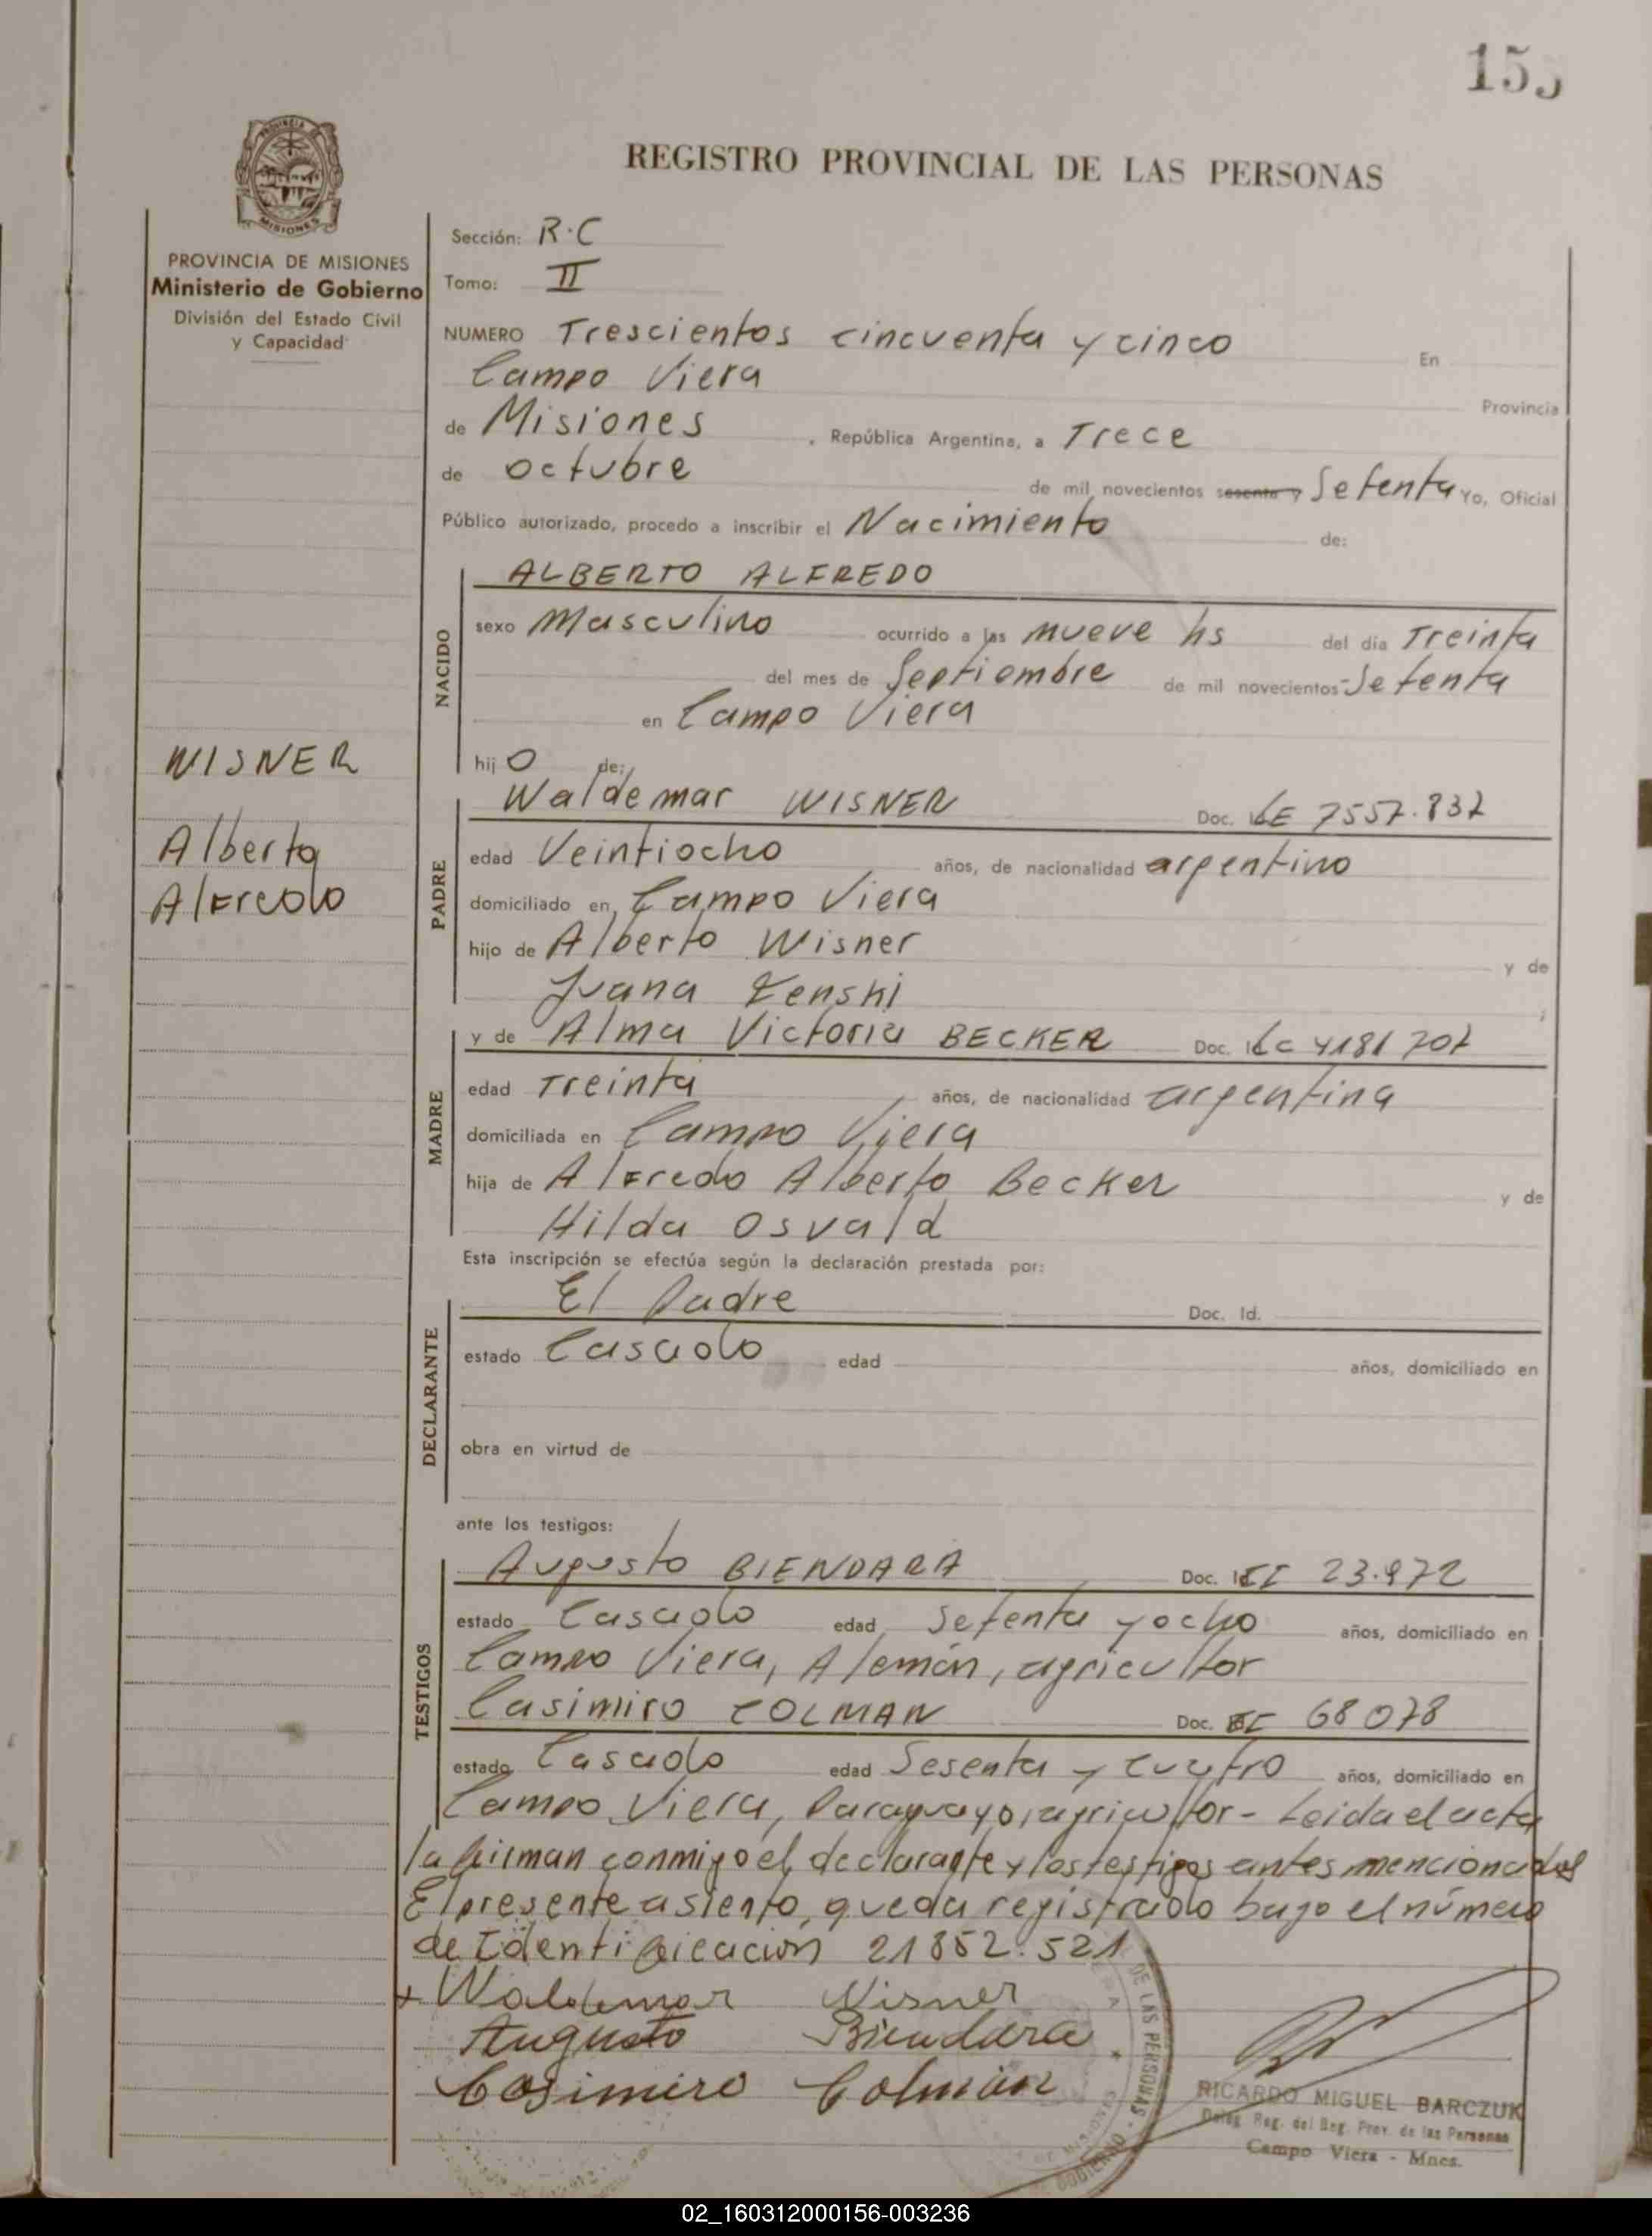 155
REGISTRO PROVINCIAL DE LAS PERSONAS
MISIONES
PROVINCIA DE MISIONES
Ministerio de Gobierno
División del Estado Civil
y Capacidad
Sección: R.C
Tomo: II
NUMERO Trescientos cincuenta y cinco En
Campo Viera Provincia
de Misiones, República Argentina, a Trece
de octubre de mil novecientos sesenta y Setenta Yo, Oficial
Público autorizado, procedo a inscribir el Nacimiento de:
NACIDO
ALBERTO ALFREDO
sexo Masculino ocurrido a las nueve hs del día Treinta
del mes de Septiembre de mil novecientos Setenta
en Campo Viera
hij o de:
WISNER
Alberto
Alfredo
PADRE
Waldemar WISNER Doc. LE 7557.832
edad Veintiocho años, de nacionalidad argentino
domiciliado en Campo Viera
hijo de Alberto Wisner y de
Juana Zenski
MADRE
y de Alma Victoria BECKER Doc. LC 4181 707
edad Treinta años, de nacionalidad argentina
domiciliada en Campo Viera
hija de Alfredo Alberto Becker y de
Hilda Osvald
Esta inscripción se efectúa según la declaración prestada por:
DECLARANTE
El Padre Doc. Id.
estado Casado edad años, domiciliado en
obra en virtud de
ante los testigos:
TESTIGOS
Augusto BIENDARA Doc. CI 23.972
estado Casado edad Setenta y ocho años, domiciliado en
Campo Viera, Alemán, agricultor
Casimiro COLMAN Doc. CI 68078
estado Casado edad Sesenta y cuatro años, domiciliado en
Campo Viera, Paraguayo, agricultor- Leida el acta
la firman conmigo el declarante y los testigos antes mencionados
El presente asiento, queda registrado bajo el número
de Identificación 21852.521
+ Waldemar Wisner
Augusto Biendara
Casimiro Colmán
DE LAS PERSONAS
RICARDO MIGUEL BARCZUK
Deleg. Reg. del Reg. Prov. de las Personas
Campo Viera - Mnes.
02_160312000156-003236